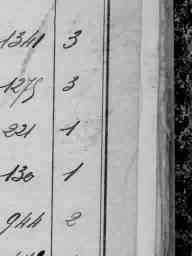 1341 3
1275 3
221 1
130 1
944 2